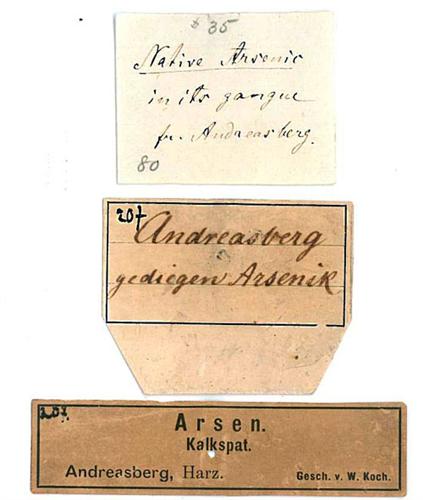 $35
Native Arsenic
in its gangue
fr. Andreasberg.
80
207
Andreasberg
gediegen Arsenik
207
Arsen.
Kalkspat.
Andreasberg, Harz.
Gesch. v. W. Koch.